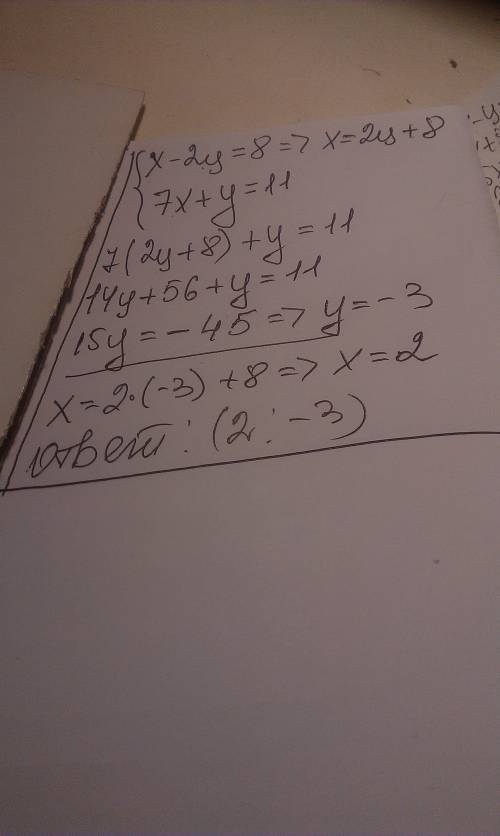 { x-2y=8 => x=2y+8
7x+y=11
7(2y+8)+y=11
14y+56+y=11
15y=-45 => y=-3
x=2·(-3)+8 => x=2
Ответ: (2; -3)